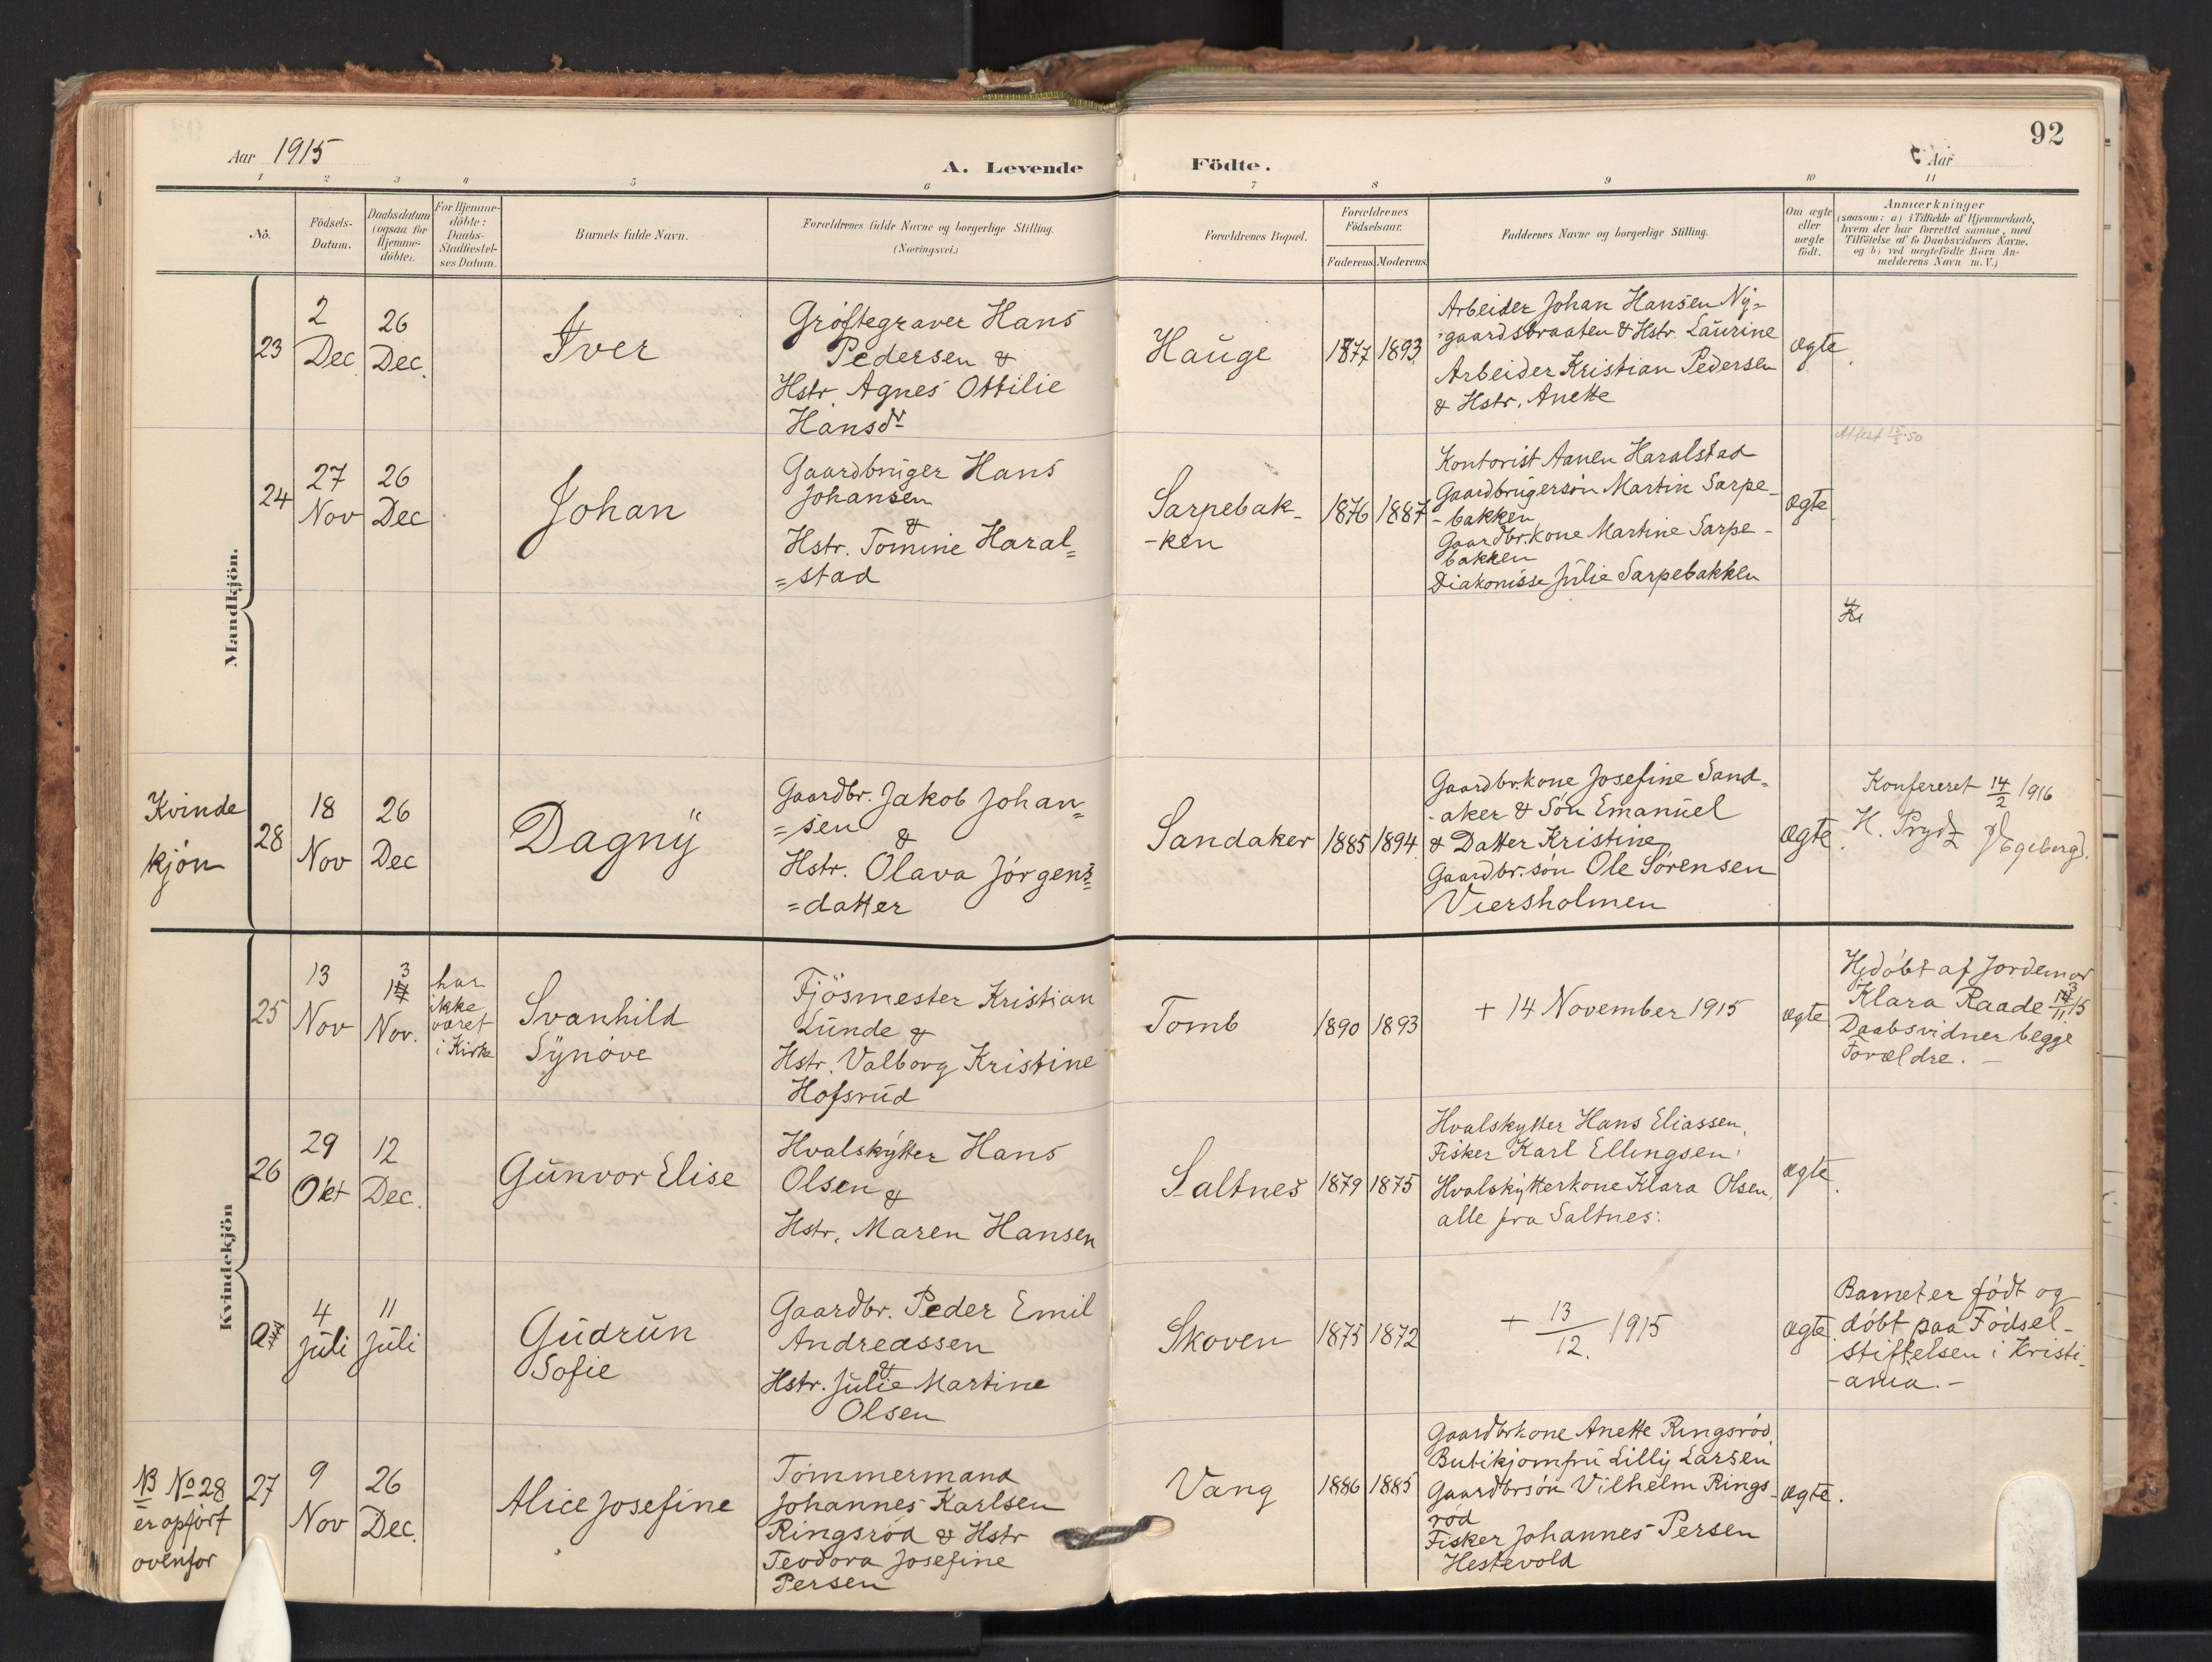 92
Aar 1915
A. Levende Födte.
Aar
1 2 3 4 5 6 7 8 9 10 11
No.
Födsels-Datum.
Daabsdatum (ogsaa for Hjemmedöbte).
For Hjemmedöbte: Daabs-Stadfæstelses Datum.
Barnets fulde Navn.
Forældrenes fulde Navne og borgerlige Stilling.
(Næringsvei.)
Forældrenes Bopæl.
Forældrenes Födselsaar.
Faderens. Moderens.
Faddernes Navne og borgerlige Stilling.
Om ægte eller uægte födt.
Anmærkninger
(saasom: a) i Tilfælde af Hjemmedaab,
hvem der har forrettet samme, med
Tilföielse af to Daabsvidners Navne.
og b) ved uægtefödte Börn An-
melderens Navn m.V.)
Mandkjön.
23
2 Dec.
26 Dec.
Iver
Grøftegraver Hans
Pedersen &
Hstr. Agnes Ottilie
Hansdr
Hauge
1877 1893
Arbeider Johan Hansen Ny=
=gaardsbraaten & Hstr. Laurine
Arbeider Kristian Pedersen
& Hstr. Anette
ægte.
24
27 Nov
26 Dec
Johan
Gaardbruger Hans
Johansen
&
Hstr. Tomine Haral=
=stad
Sarpebak-
-ken
1876 1887
Kontorist Aanen Haralstad
Gaardbrugersøn Martin Sarpe-
-bakken
Gaardbr.kone Martine Sarpe-
bakken
Diakonisse Julie Sarpebakken
ægte.
Attest 15/3.50
Kvinde
kjøn
28
18 Nov
26 Dec
Dagny
Gaardbr. Jakob Johan=
=sen
&
Hstr. Olava Jørgens=
=datter
Sandaker
1885 1894
Gaardbr.kone Josefine Sand-
-aker & Søn Emanuel
& Datter Kristine
Gaardbr.søn Ole Sørensen
Viersholmen
ægte.
Konfereret 14/2 1916
H. Prydz J Egeberg.
Kvindekjön
25
13 Nov
13 Nov.
har
ikke
været
i Kirke
Svanhild
Synøve
Fjøsmester Kristian
Lunde &
Hstr. Valborg Kristine
Hofsrud
Tomb
1890 1893
+ 14 November 1915
ægte.
Hjdøbt af Jordemor
Klara Raade 13/11 15
Daabsvidner begge
Forældre. -
26
29 Okt
12 Dec.
Gunvor Elise
Hvalskytter Hans
Olsen &
Hstr. Maren Hansen
Saltnes
1879 1875
Hvalskytter Hans Eliassen,
Fisker Karl Ellingsen,
Hvalskytterkone Klara Olsen,
alle fra Saltnes.
ægte.
a
4 Juli
11 Juli
Gudrun
Sofie
Gaardbr. Peder Emil
Andreassen
&
Hstr. Julie Martine
Olsen
Skoven
1875 1872
+ 13/12. 1915
ægte.
Barnet er født og
døbt paa Fødsel-
stiftelsen i Kristi-
-ania. -
NB No 28
er opført
ovenfor
27
9 Nov
26 Dec.
Alice Josefine
Tømmermand
Johannes Karlsen
Ringsrød & Hstr
Teodora Josefine
Persen
Vang
1886 1885
Gaardbrkone Anette Ringsrød
Butikjomfru Lilly Larsen
Gaardbrsøn Vilhelm Rings-
rød
Fisker Johannes Persen
Hestevold
ægte.